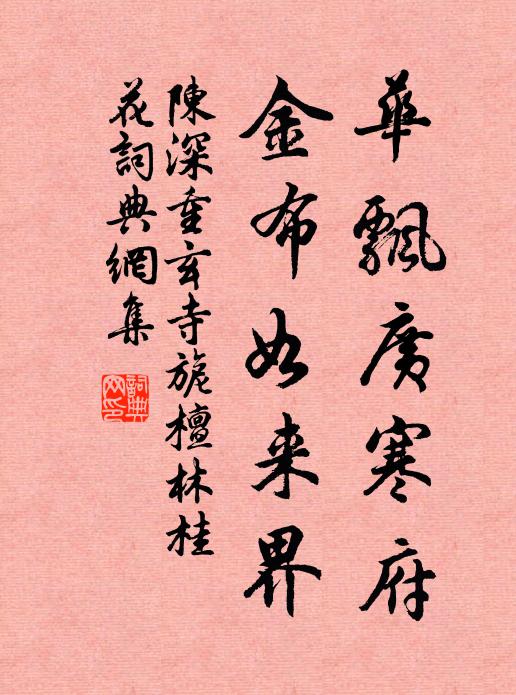 華飄廣寒府
金布如来界
陳深重玄寺旃檀林桂
花詞典網集
詞典
网印